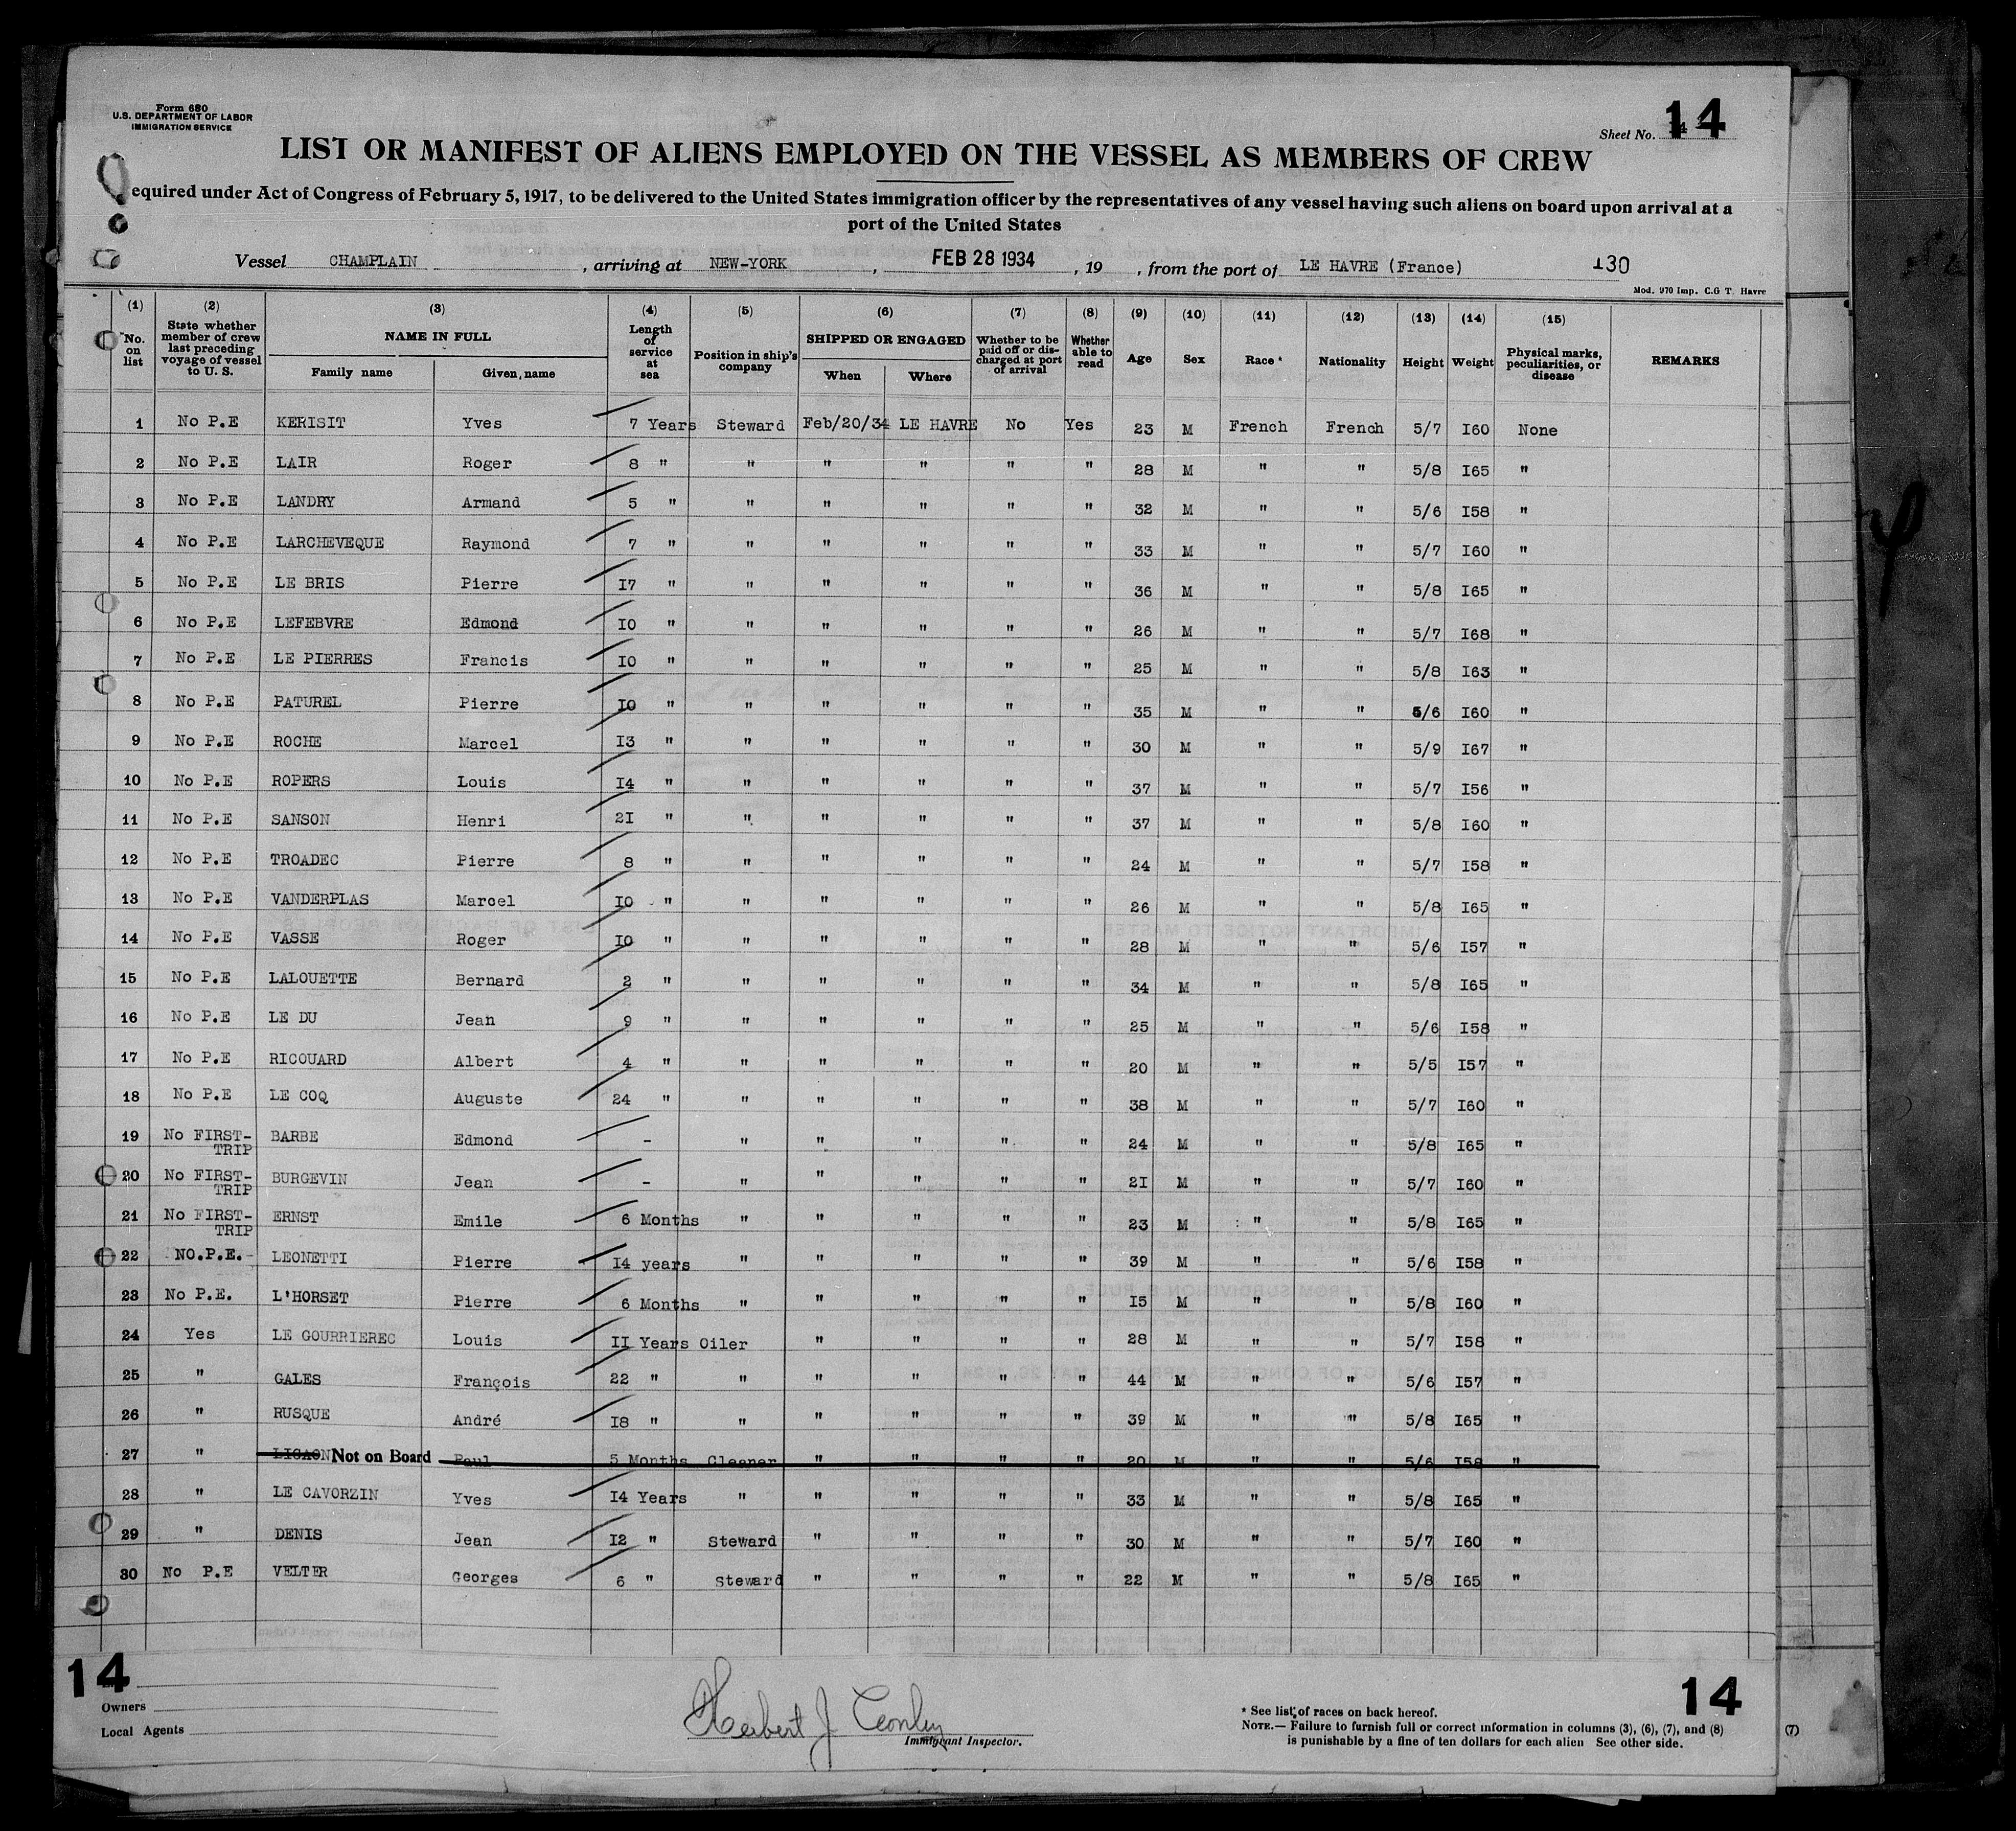 Form 680
U.S. DEPARTMENT OF LABOR
IMMIGRATION SERVICE
Sheet No. 14
LIST OR MANIFEST OF ALIENS EMPLOYED ON THE VESSEL AS MEMBERS OF CREW
equired under Act of Congress of February 5, 1917, to be delivered to the United States immigration officer by the representatives of any vessel having such aliens on board upon arrival at a
port of the United States
Vessel CHAMPLAIN , arriving at NEW-YORK , FEB 28 1934 , 19 , from the port of LE HAVRE (France) 130
Mod. 970 Imp. C.G T. Havre
(1) (2) (3) (4) (5) (6) (7) (8) (9) (10) (11) (12) (13) (14) (15)
No. on list | State whether member of crew last preceding voyage of vessel to U. S. | NAME IN FULL Family name Given name | Length of service at sea | Position in ship's company | SHIPPED OR ENGAGED When Where | Whether to be paid off or discharged at port of arrival | Whether able to read | Age | Sex | Race * | Nationality | Height | Weight | Physical marks, peculiarities, or disease | REMARKS
1 No P.E KERISIT Yves 7 Years Steward Feb/20/34 LE HAVRE No Yes 23 M French French 5/7 I60 None
2 No P.E LAIR Roger 8 " " " " " " 28 M " " 5/8 I65 "
3 No P.E LANDRY Armand 5 " " " " " " 32 M " " 5/6 I58 "
4 No P.E LARCHEVEQUE Raymond 7 " " " " " " 33 M " " 5/7 I60 "
5 No P.E LE BRIS Pierre I7 " " " " " " 36 M " " 5/8 I65 "
6 No P.E LEFEBVRE Edmond I0 " " " " " " 26 M " " 5/7 I68 "
7 No P.E LE PIERRES Francis I0 " " " " " " 25 M " " 5/8 I63 "
8 No P.E PATUREL Pierre I0 " " " " " " 35 M " " 5/6 I60 "
9 No P.E ROCHE Marcel I3 " " " " " " 30 M " " 5/9 I67 "
10 No P.E ROPERS Louis I4 " " " " " " 37 M " " 5/7 I56 "
11 No P.E SANSON Henri 2I " " " " " " 37 M " " 5/8 I60 "
12 No P.E TROADEC Pierre 8 " " " " " " 24 M " " 5/7 I58 "
13 No P.E VANDERPLAS Marcel I0 " " " " " " 26 M " " 5/8 I65 "
14 No P.E VASSE Roger I0 " " " " " " 28 M " " 5/6 I57 "
15 No P.E LALOUETTE Bernard 2 " " " " " " 34 M " " 5/8 I65 "
16 No P.E LE DU Jean 9 " " " " " " 25 M " " 5/6 I58 "
17 No P.E RICOUARD Albert 4 " " " " " " 20 M " " 5/5 I57 "
18 No P.E LE COQ Auguste 24 " " " " " " 38 M " " 5/7 I60 "
19 No FIRST-TRIP BARBE Edmond - " " " " " 24 M " " 5/8 I65 "
20 No FIRST-TRIP BURGEVIN Jean - " " " " " 2I M " " 5/7 I60 "
21 No FIRST-TRIP ERNST Emile 6 Months " " " " " 23 M " " 5/8 I65 "
22 NO.P.E. LEONETTI Pierre I4 years " " " " " 39 M " " 5/6 I58 "
23 No P.E. L'HORSET Pierre 6 Months " " " " " I5 M " " 5/8 I60 "
24 Yes LE GOURRIEREC Louis II Years Oiler " " " " 28 M " " 5/7 I58 "
25 " GALES François 22 " " " " " " 44 M " " 5/6 I57 "
26 " RUSQUE André I8 " " " " " " 39 M " " 5/8 I65 "
27 " Not on Board Paul 5 Months Cleaner " " " " 20 M " " 5/6 I58 "
28 " LE CAVORZIN Yves I4 Years " " " " " 33 M " " 5/8 I65 "
29 " DENIS Jean I2 " Steward " " " " 30 M " " 5/7 I60 "
30 No P.E VELTER Georges 6 " Steward " " " " 22 M " " 5/8 I65 "
14
Owners
Local Agents
Herbert J Conley
Immigrant Inspector.
14
* See list of races on back hereof.
NOTE.— Failure to furnish full or correct information in columns (3), (6), (7), and (8)
is punishable by a fine of ten dollars for each alien See other side.
(7)